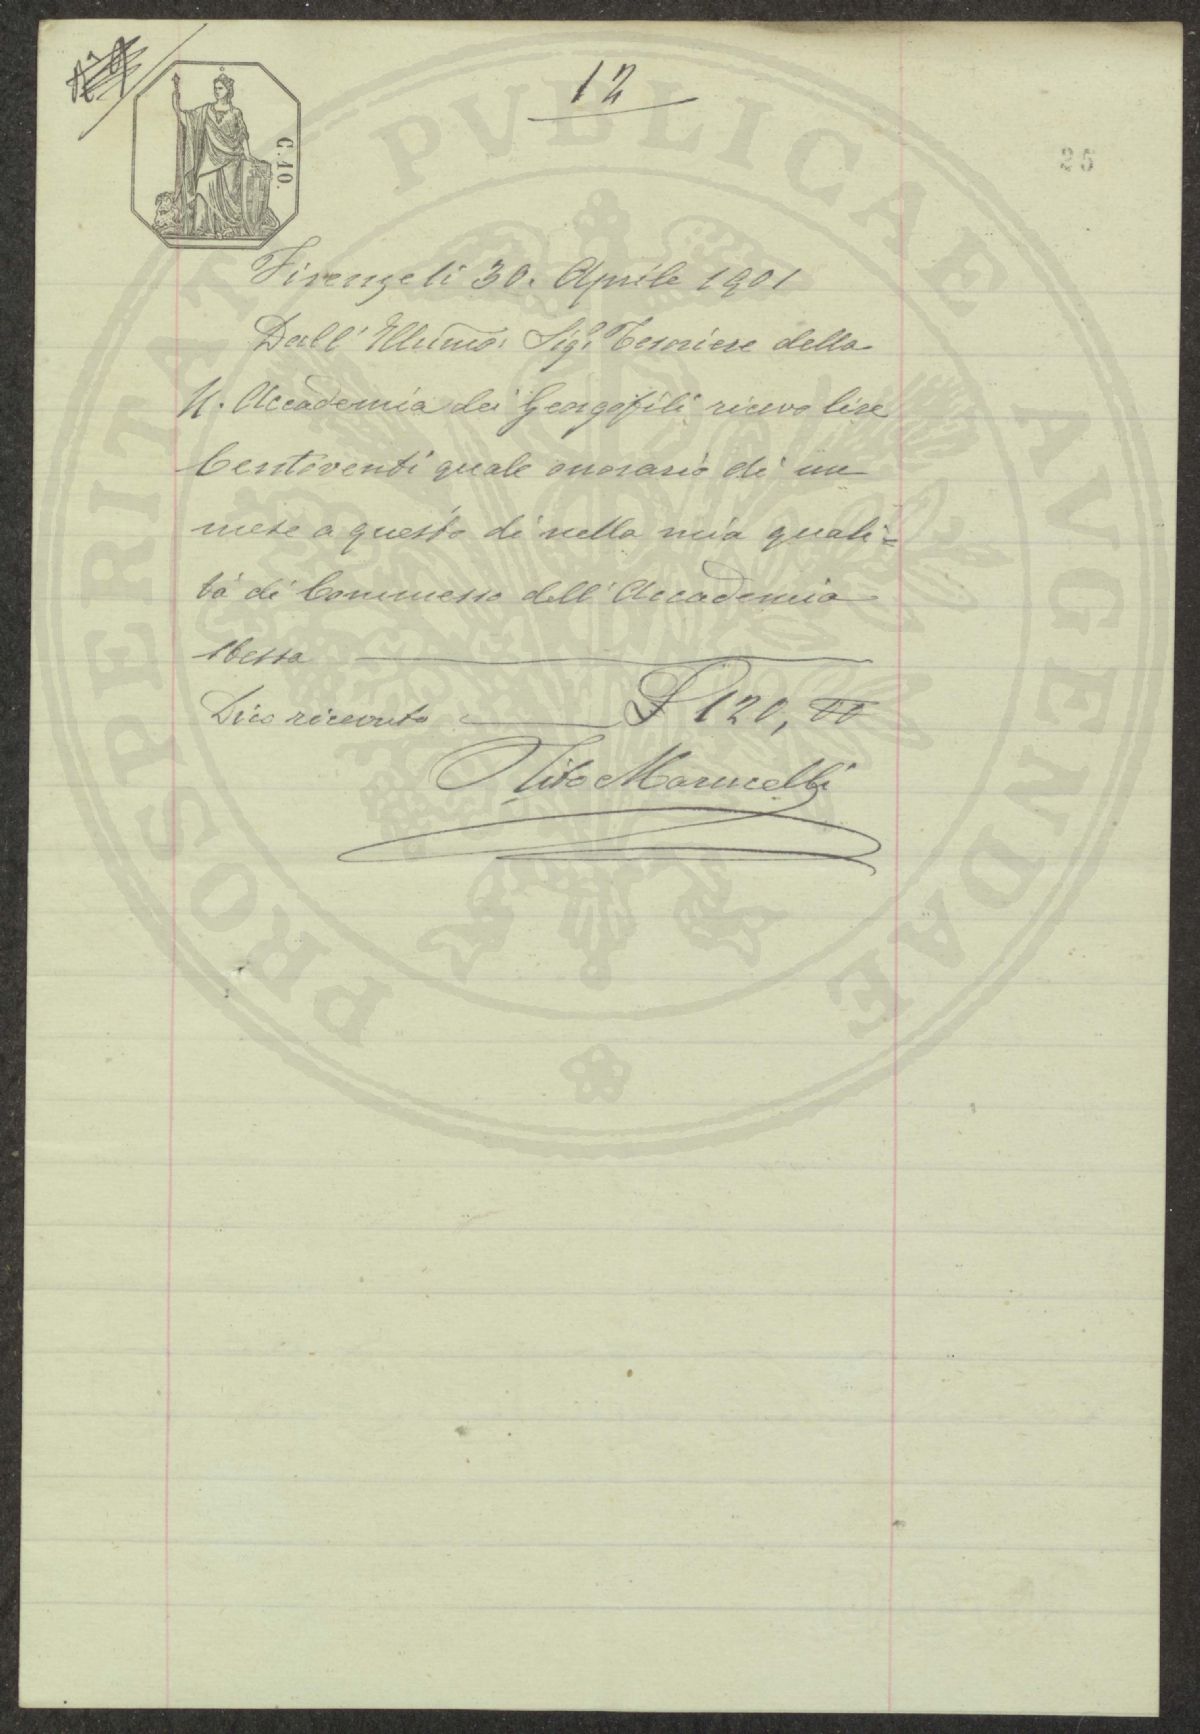 12
C. 10.
25
Firenze li 30. Aprile 1901
Dall' Illumo: Sigr Tesoriere della
R. Accademia dei Georgofili ricevo lire
Centoventi quale onorario di un
mese a questo dì nella mia quali=
tà di Commesso dell' Accademia
stessa
Dico ricevuto £ 120, 00
Tito Marucelli
PROSPERITATI PVBLICAE AVGENDAE